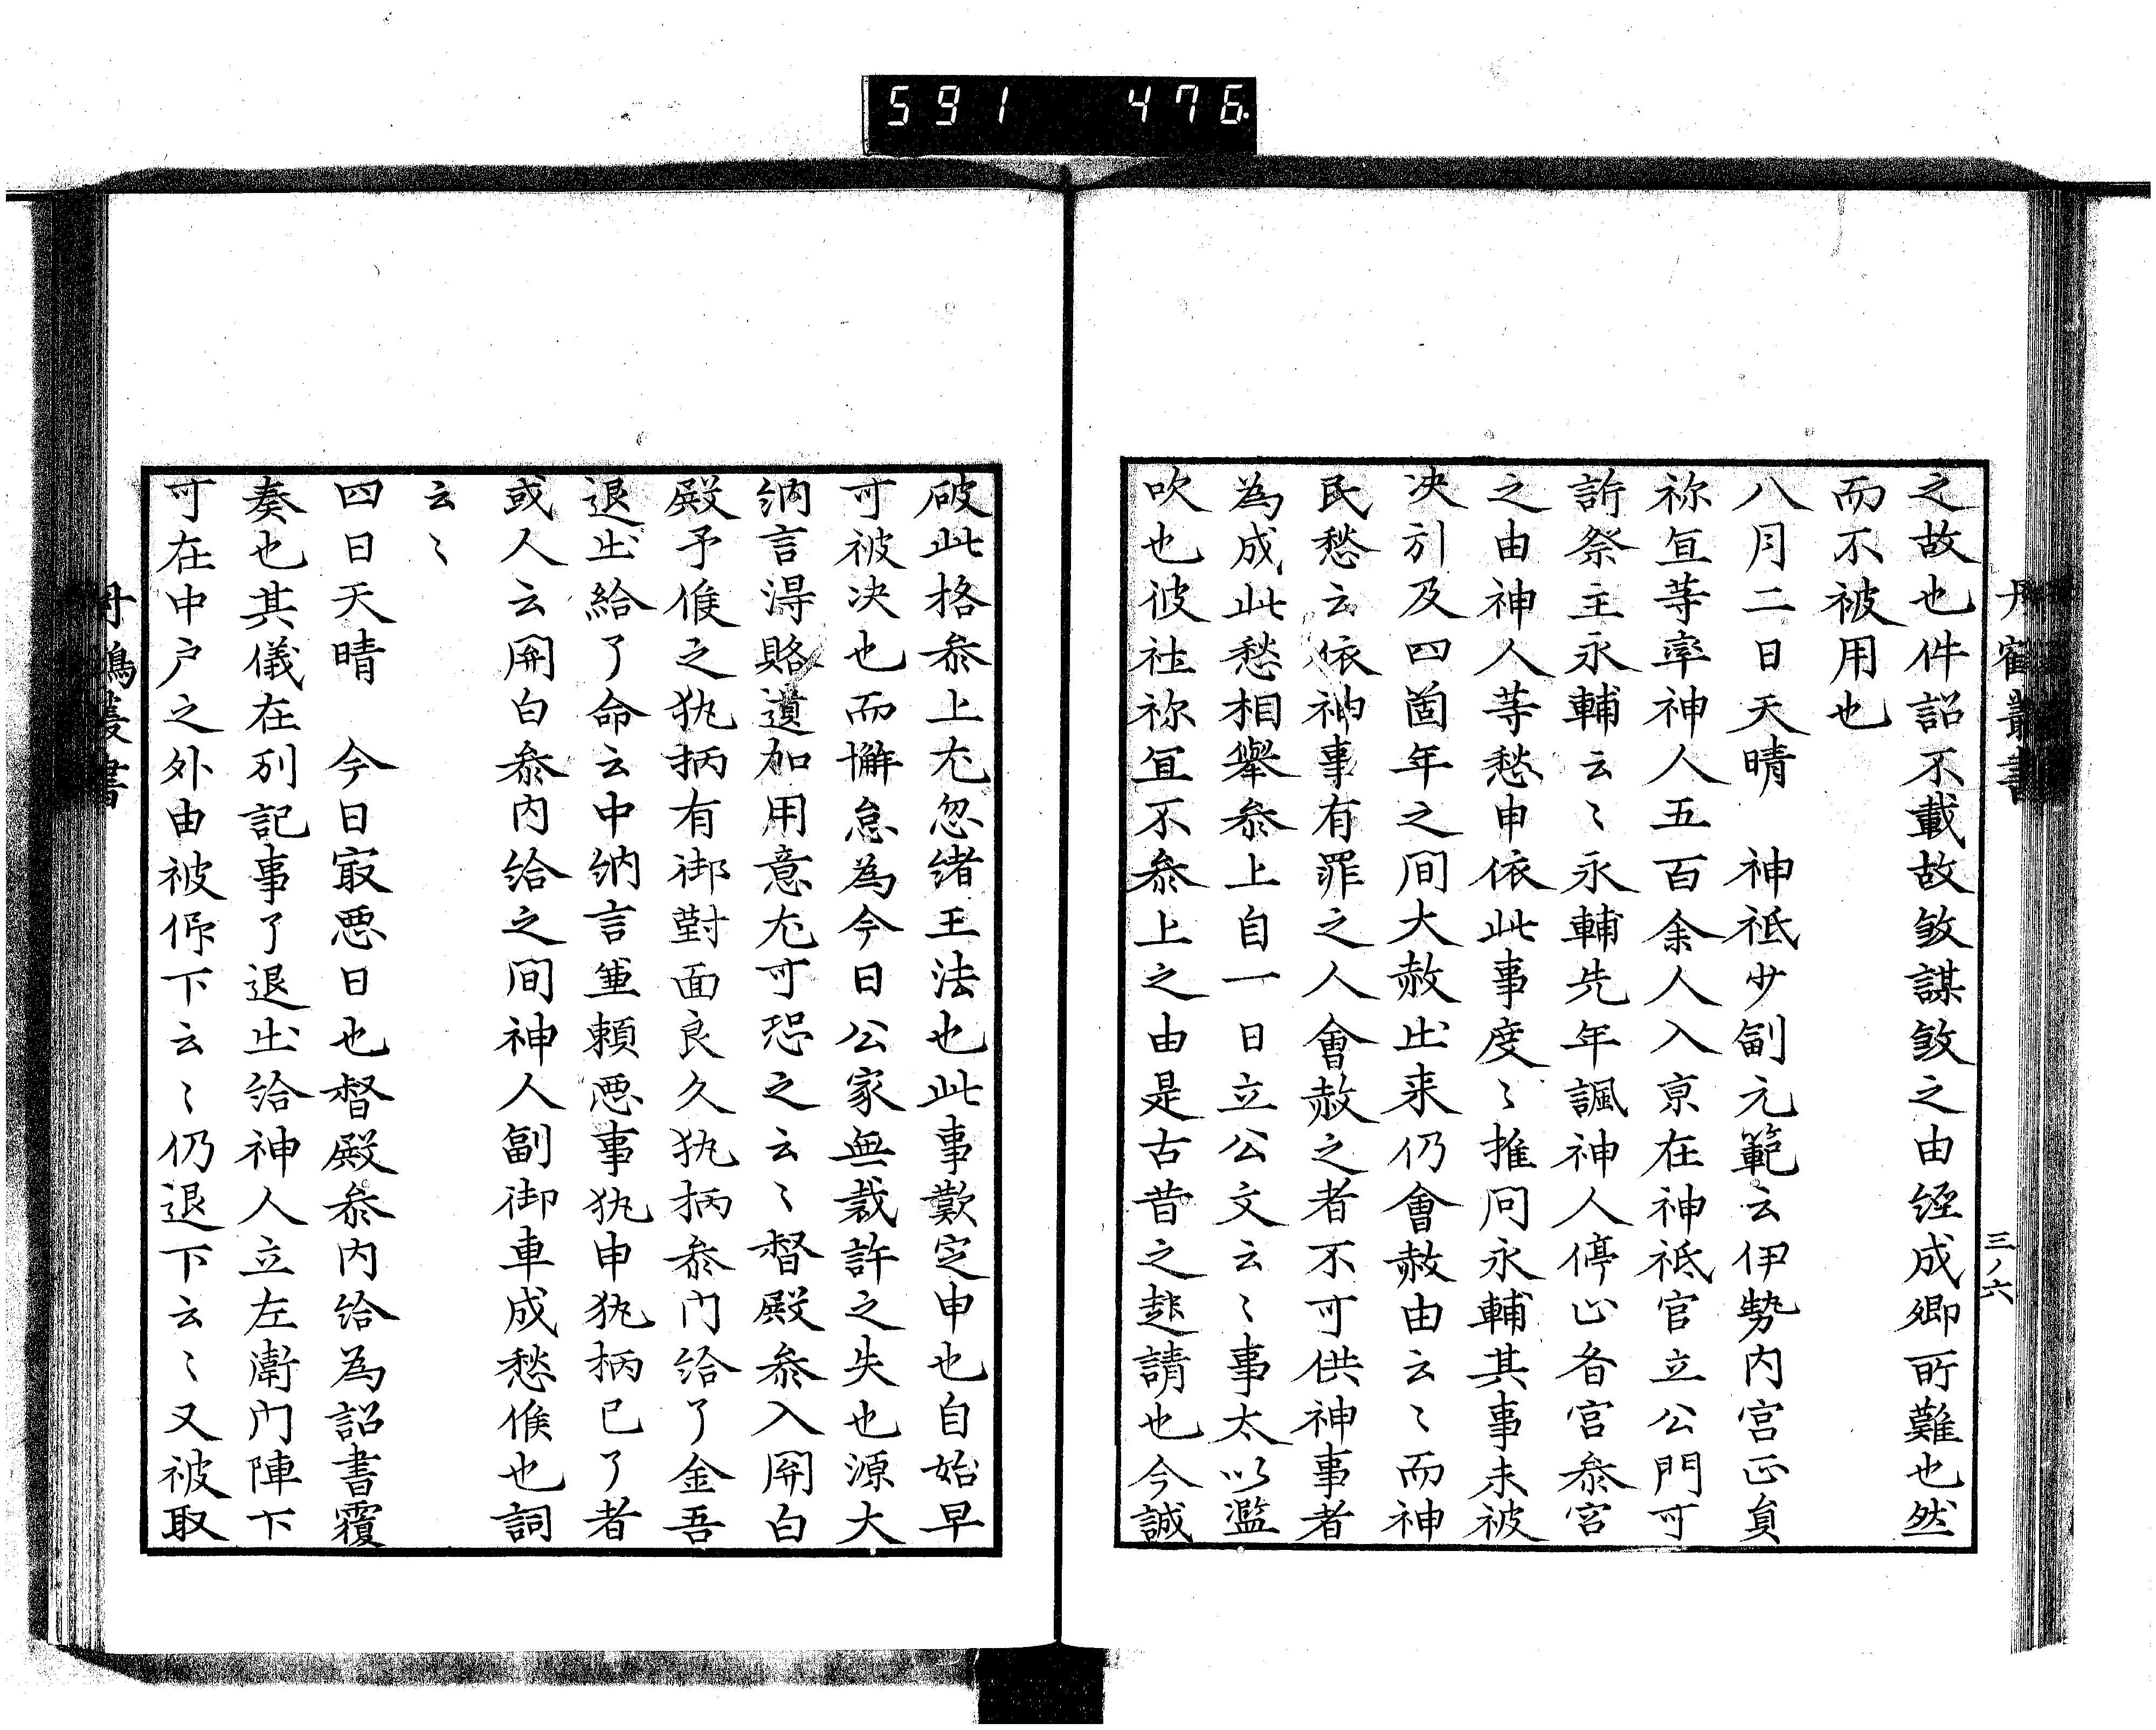 591　476
丹鶴叢書
三ノ六
之故也件詔不載故敓謀敓之由経成卿所難也然
而不被用也
八月二日天晴　神祇少副元範云伊勢内宮正員
祢宜等率神人五百余人入京在神祇官立公門可
訴祭主永輔云〻永輔先年諷神人停止斎宮参宮
之由神人等愁申依此事度〻推問永輔其事未被
决引及四箇年之間大赦出来仍會赦由云〻而神
民愁云依神事有罪之人會赦之者不可供神事者
為成此愁相擧参上自一日立公文云〻事太以濫
吹也彼社祢宜不参上之由是古昔之起請也今誠
破此格参上尤忽緒王法也此事歎定申也自始早
可被决也而懈怠為今日公家無裁許之失也源大
納言得賂遺加用意尤可恐之云〻督殿参入関白
殿予候之執柄有御對面良久執柄参門給了金吾
退出給了命云中納言兼頼悪事執申執柄已了者
或人云関白参内給之間神人副御車成愁候也詞
云〻
四日天晴　今日寂悪日也督殿参内給為詔書覆
奏也其儀在別記事了退出給神人立左衛門陣下
可在中戸之外由被仰下云〻仍退下云〻又被取
丹鶴叢書